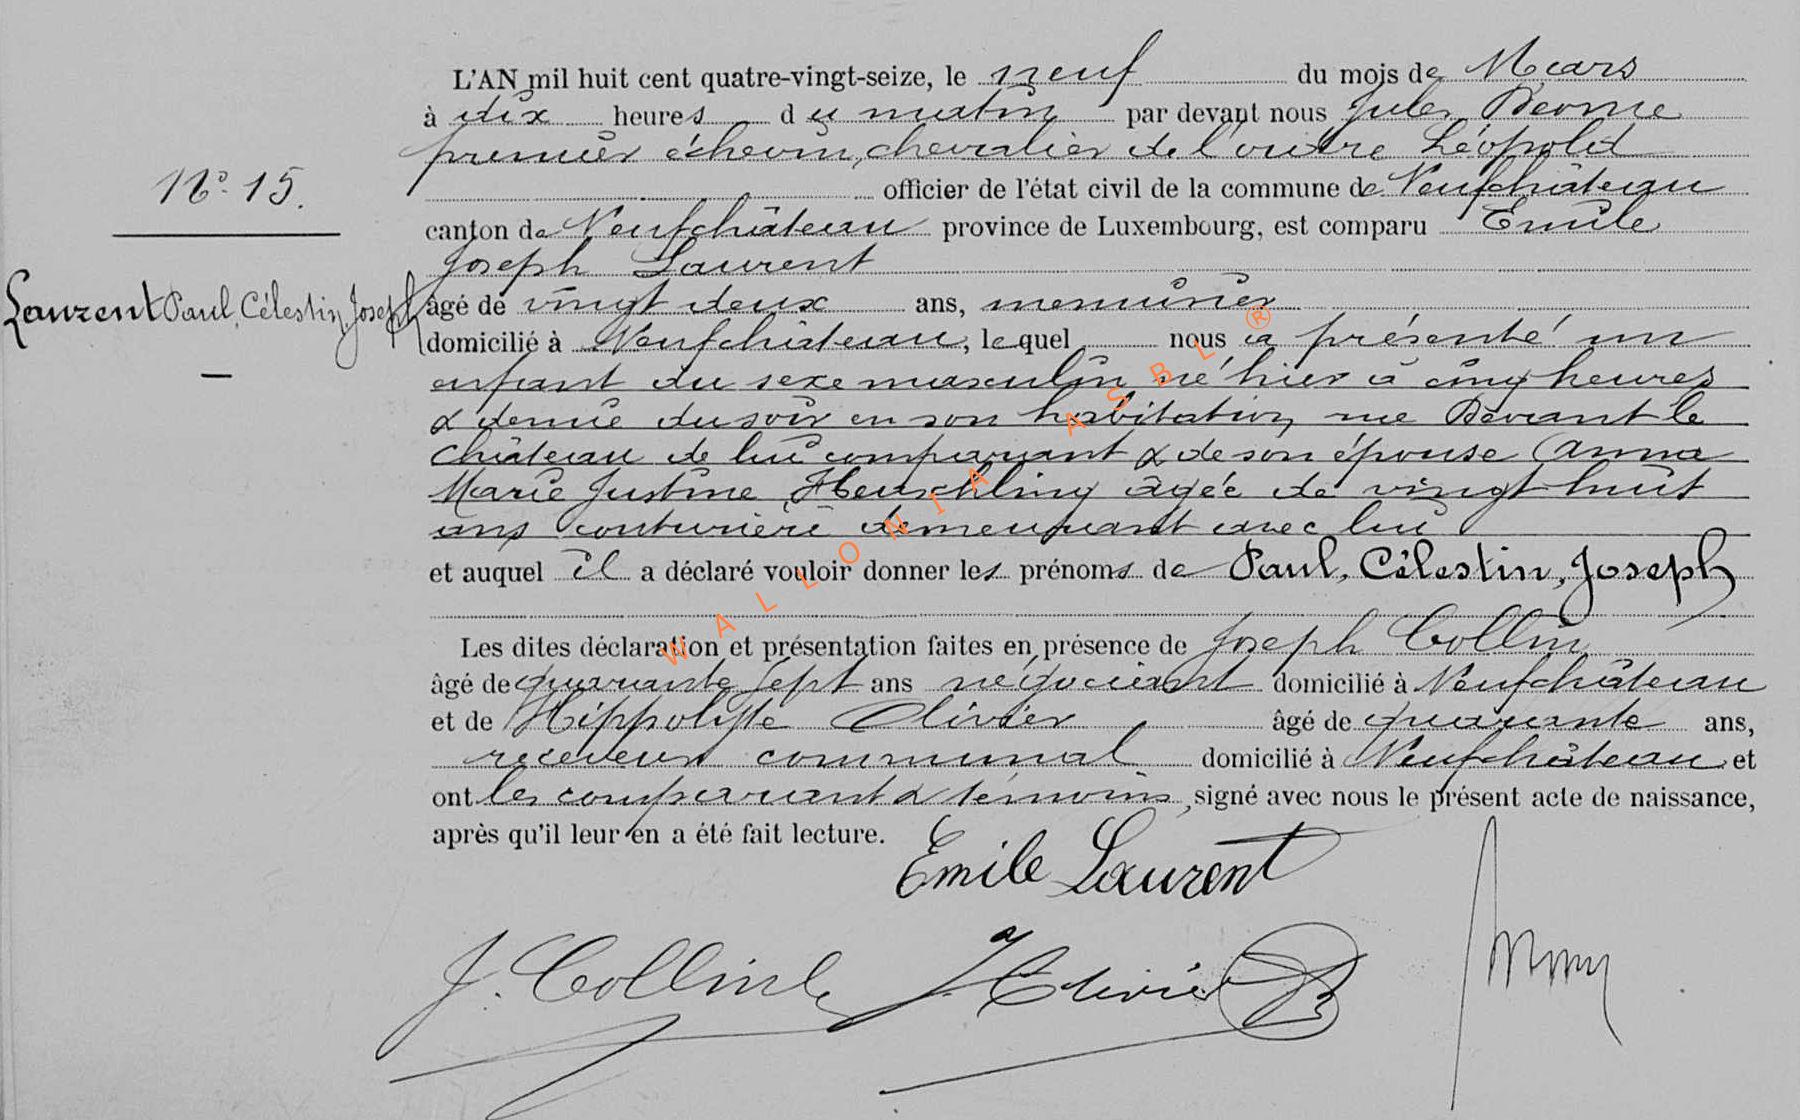 L'AN mil huit cent quatre-vingt-seize, le neuf du mois de Mars
à dix heures du matin par devant nous Jules
premier échevin, chevalier de l'ordre Léopold
officier de l'état civil de la commune de Neufchâteau
canton de Neufchâteau province de Luxembourg, est comparu Emile
Joseph Laurent
âgé de vingt deux ans, menuisier
domicilié à Neufchâteau, lequel nous a présenté un
enfant du sexe masculin né hier à cinq heures
& demie du soir en son habitation, rue Devant le
Château de lui comparant & de son épouse Anna
Marie Justine Heuschling âgée de vingt huit
ans couturière demeurant avec lui
et auquel il a déclaré vouloir donner les prénoms de Paul, Célestin, Joseph
Les dites déclaration et présentation faites en présence de Joseph Collin
âgé de quarante sept ans négociant domicilié à Neufchâteau
et de Hippolyte Olivier âgé de quarante ans,
receveur communal domicilié à Neufchâteau et
ont les comparant & témoins, signé avec nous le présent acte de naissance,
après qu'il leur en a été fait lecture.
Nº 15.
Laurent Paul, Célestin, Joseph
Emile Laurent
J. Collin
H Olivier
WALLONIA ASBL ®